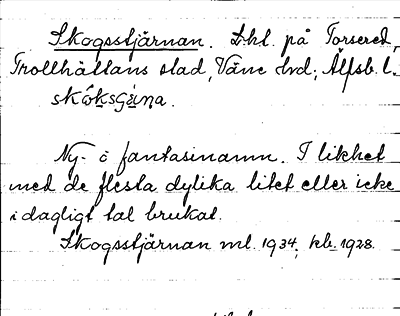 Skogsstjärnan. Lht. på Torsered,
Trollhättans stad, Väne hd; Älfsb. l.
skóksςæ̀ṇa.
Ny- o fantasinamn. I likhet
med de flesta dylika litet eller icke
i dagligt tal brukat.
Skogsstjärnan ml. 1934; kb. 1928.